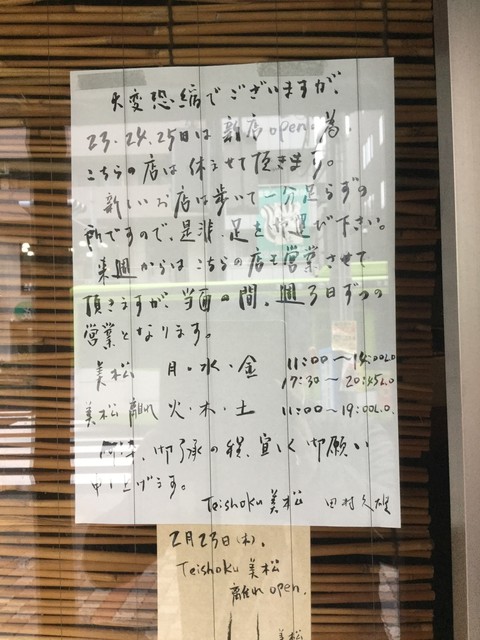 大変恐縮でございますが、
23.24.25日は新店openの為、
こちらの店は休ませて頂きます。
新しいお店は歩いて一分足らずの
所ですので、是非、足をお運び下さい。
来週からはこちらの店も営業させて
頂きますが、当面の間、週3日ずつの
営業となります。
美松 月・水・金 11:00〜14:00L.O
17:30〜20:45L.O
美松 離れ 火・木・土 11:00〜19:00L.O.
何卒、御了承の程、宜しく御願い
申し上げます。
Teishoku 美松 田村久雄
2月23日(木)、
Teishoku 美松
離れ open.
美松